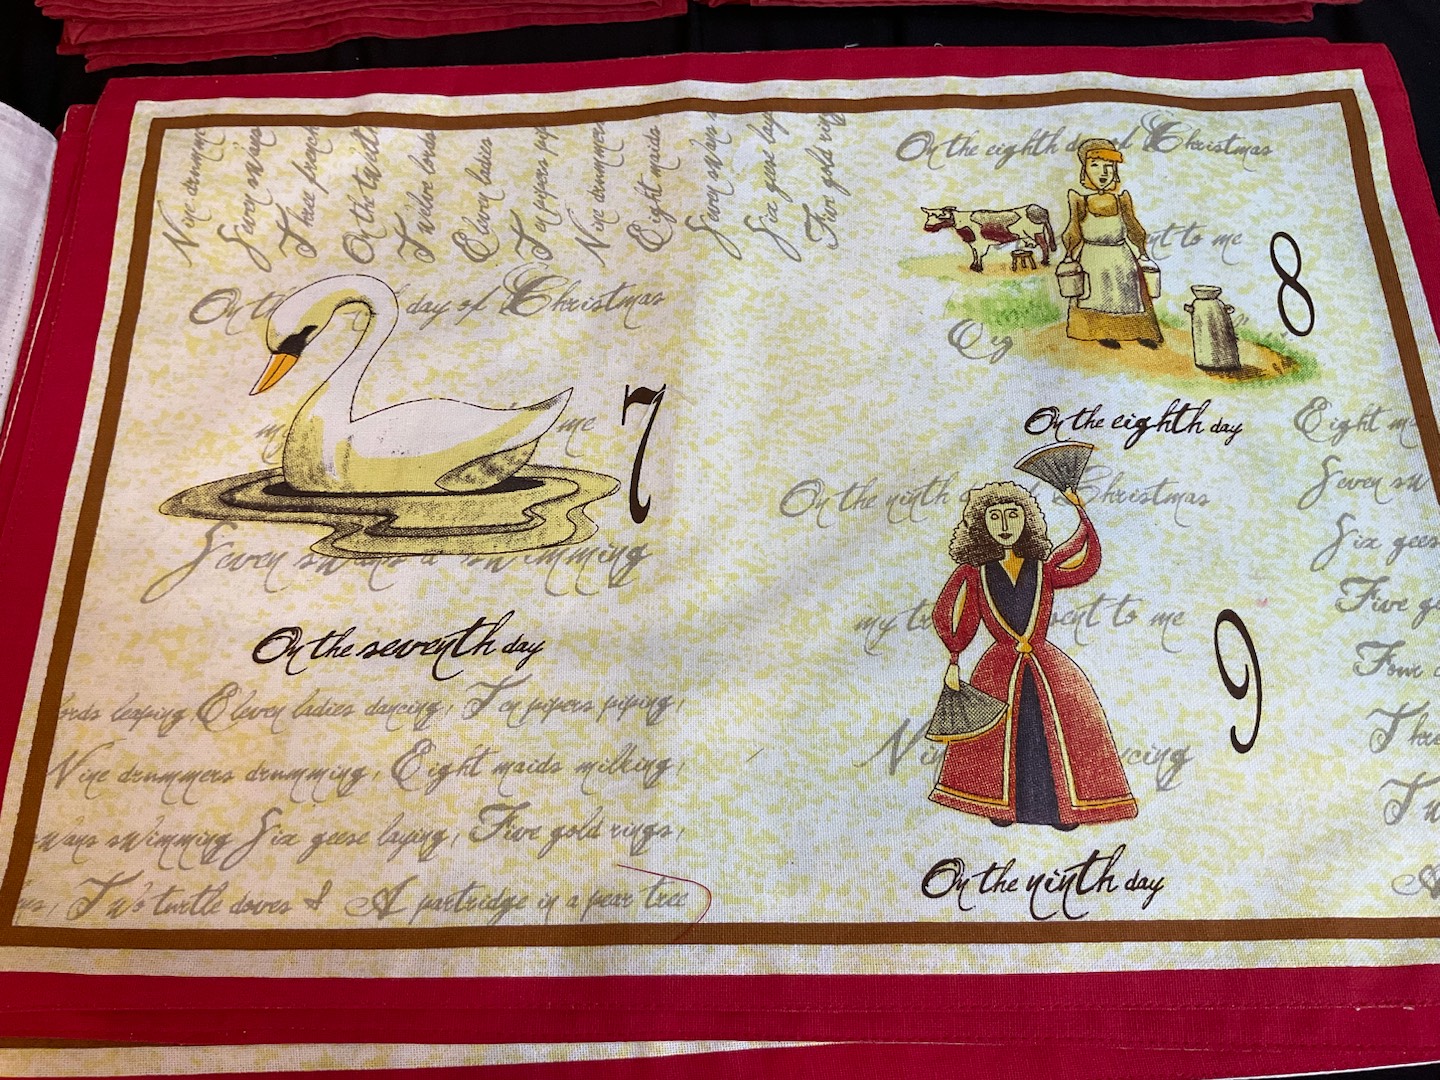 Nine drumme
Seven swans
Three french
On the twelfth
Twelve lords
Eleven ladies
Ten pipers pip
Nine drummers
Eight maids
Seven swans s
Six geese lay
Five gold ring
On th day of Christmas
7
me
Seven swans a swimming
On the seventh day
ords leaping, Eleven ladies dancing, Ten pipers piping,
Nine drummers drumming, Eight maids milking,
wans swimming Six geese laying, Five gold rings,
Two turtle doves & A partridge in a pear tree
On the eighth d of Christmas
nt to me
8
Eig
On the eighth day
On the ninth Christmas
my tr sent to me
9
Nin cing
On the ninth day
Eight m
Seven sw
Six geese
Five g
Four c
Thre
Tw
A